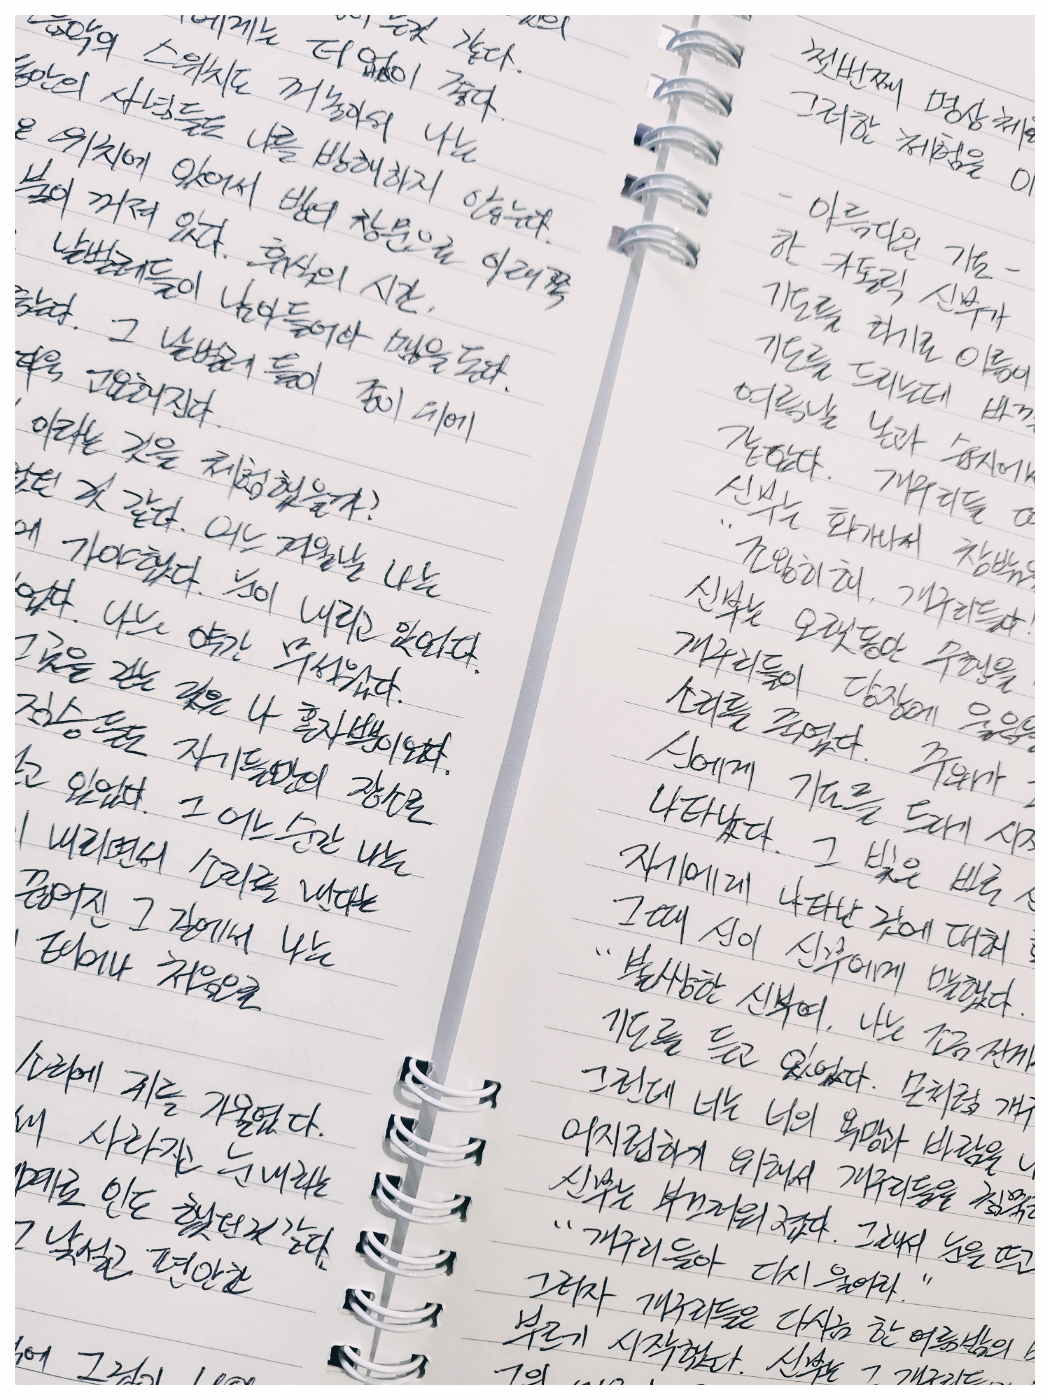 에게는 더 없이 좋다.
음악의 스위치도 꺼놓아서 나는
동안의 사념들도 나를 방해하지 않는다.
위치에 있어서 밤의 창문으로 아래쪽
불이 꺼져 있다. 휴식의 시간.
날벌레들이 날아들어와 맴을 돈다.
그 날벌레들이 종이 위에
고요해진다.
이라는 것을 체험했을까?
것 같다. 어느 겨울날 나는
에 가야했다. 눈이 내리고 있었다.
나는 약간 무서웠다.
그곳을 걷는 것은 나 혼자뿐이었다.
짐승들도 자기들만의 장소로
있었다. 그 어느 순간 나는
내리면서 소리를 낸다는
끊어진 그 길에서 나는
태어나 처음으로
소리에 귀를 기울였다.
사라지고 눈 내리는
인도했던 것 같다.
그 낯설고 편안한
첫번째 명상체험
그러한 체험을
- 아름다운 기도 -
한 카톨릭 신부가
기도를 하기로 이름이
기도를 드리는데 바깥
여름날 날과 습지에서
같았다. 개구리들
신부는 화가나서 창밖을
"조용히 해, 개구리들아!
신부는 오랫동안 수련을
개구리들이 당장에 울음을
소리를 죽였다. 주위가
신에게 기도를 드리기 시작
나타났다. 그 빛은 바로 신
자기에게 나타난 것에 대해
그때 신이 신부에게 말했다.
"불쌍한 신부여, 나는 조금 전까지
기도를 듣고 있었다. 모처럼 개구
그런데 너는 너의 욕망과 바람을
어지럽히기 위해서 개구리들을 침묵
신부는 부끄러워졌다. 그래서 눈을 뜨고
"개구리들아 다시 울어라."
그러자 개구리들은 다시금 한 여름밤의
부르기 시작했다. 신부는 그 개구리들